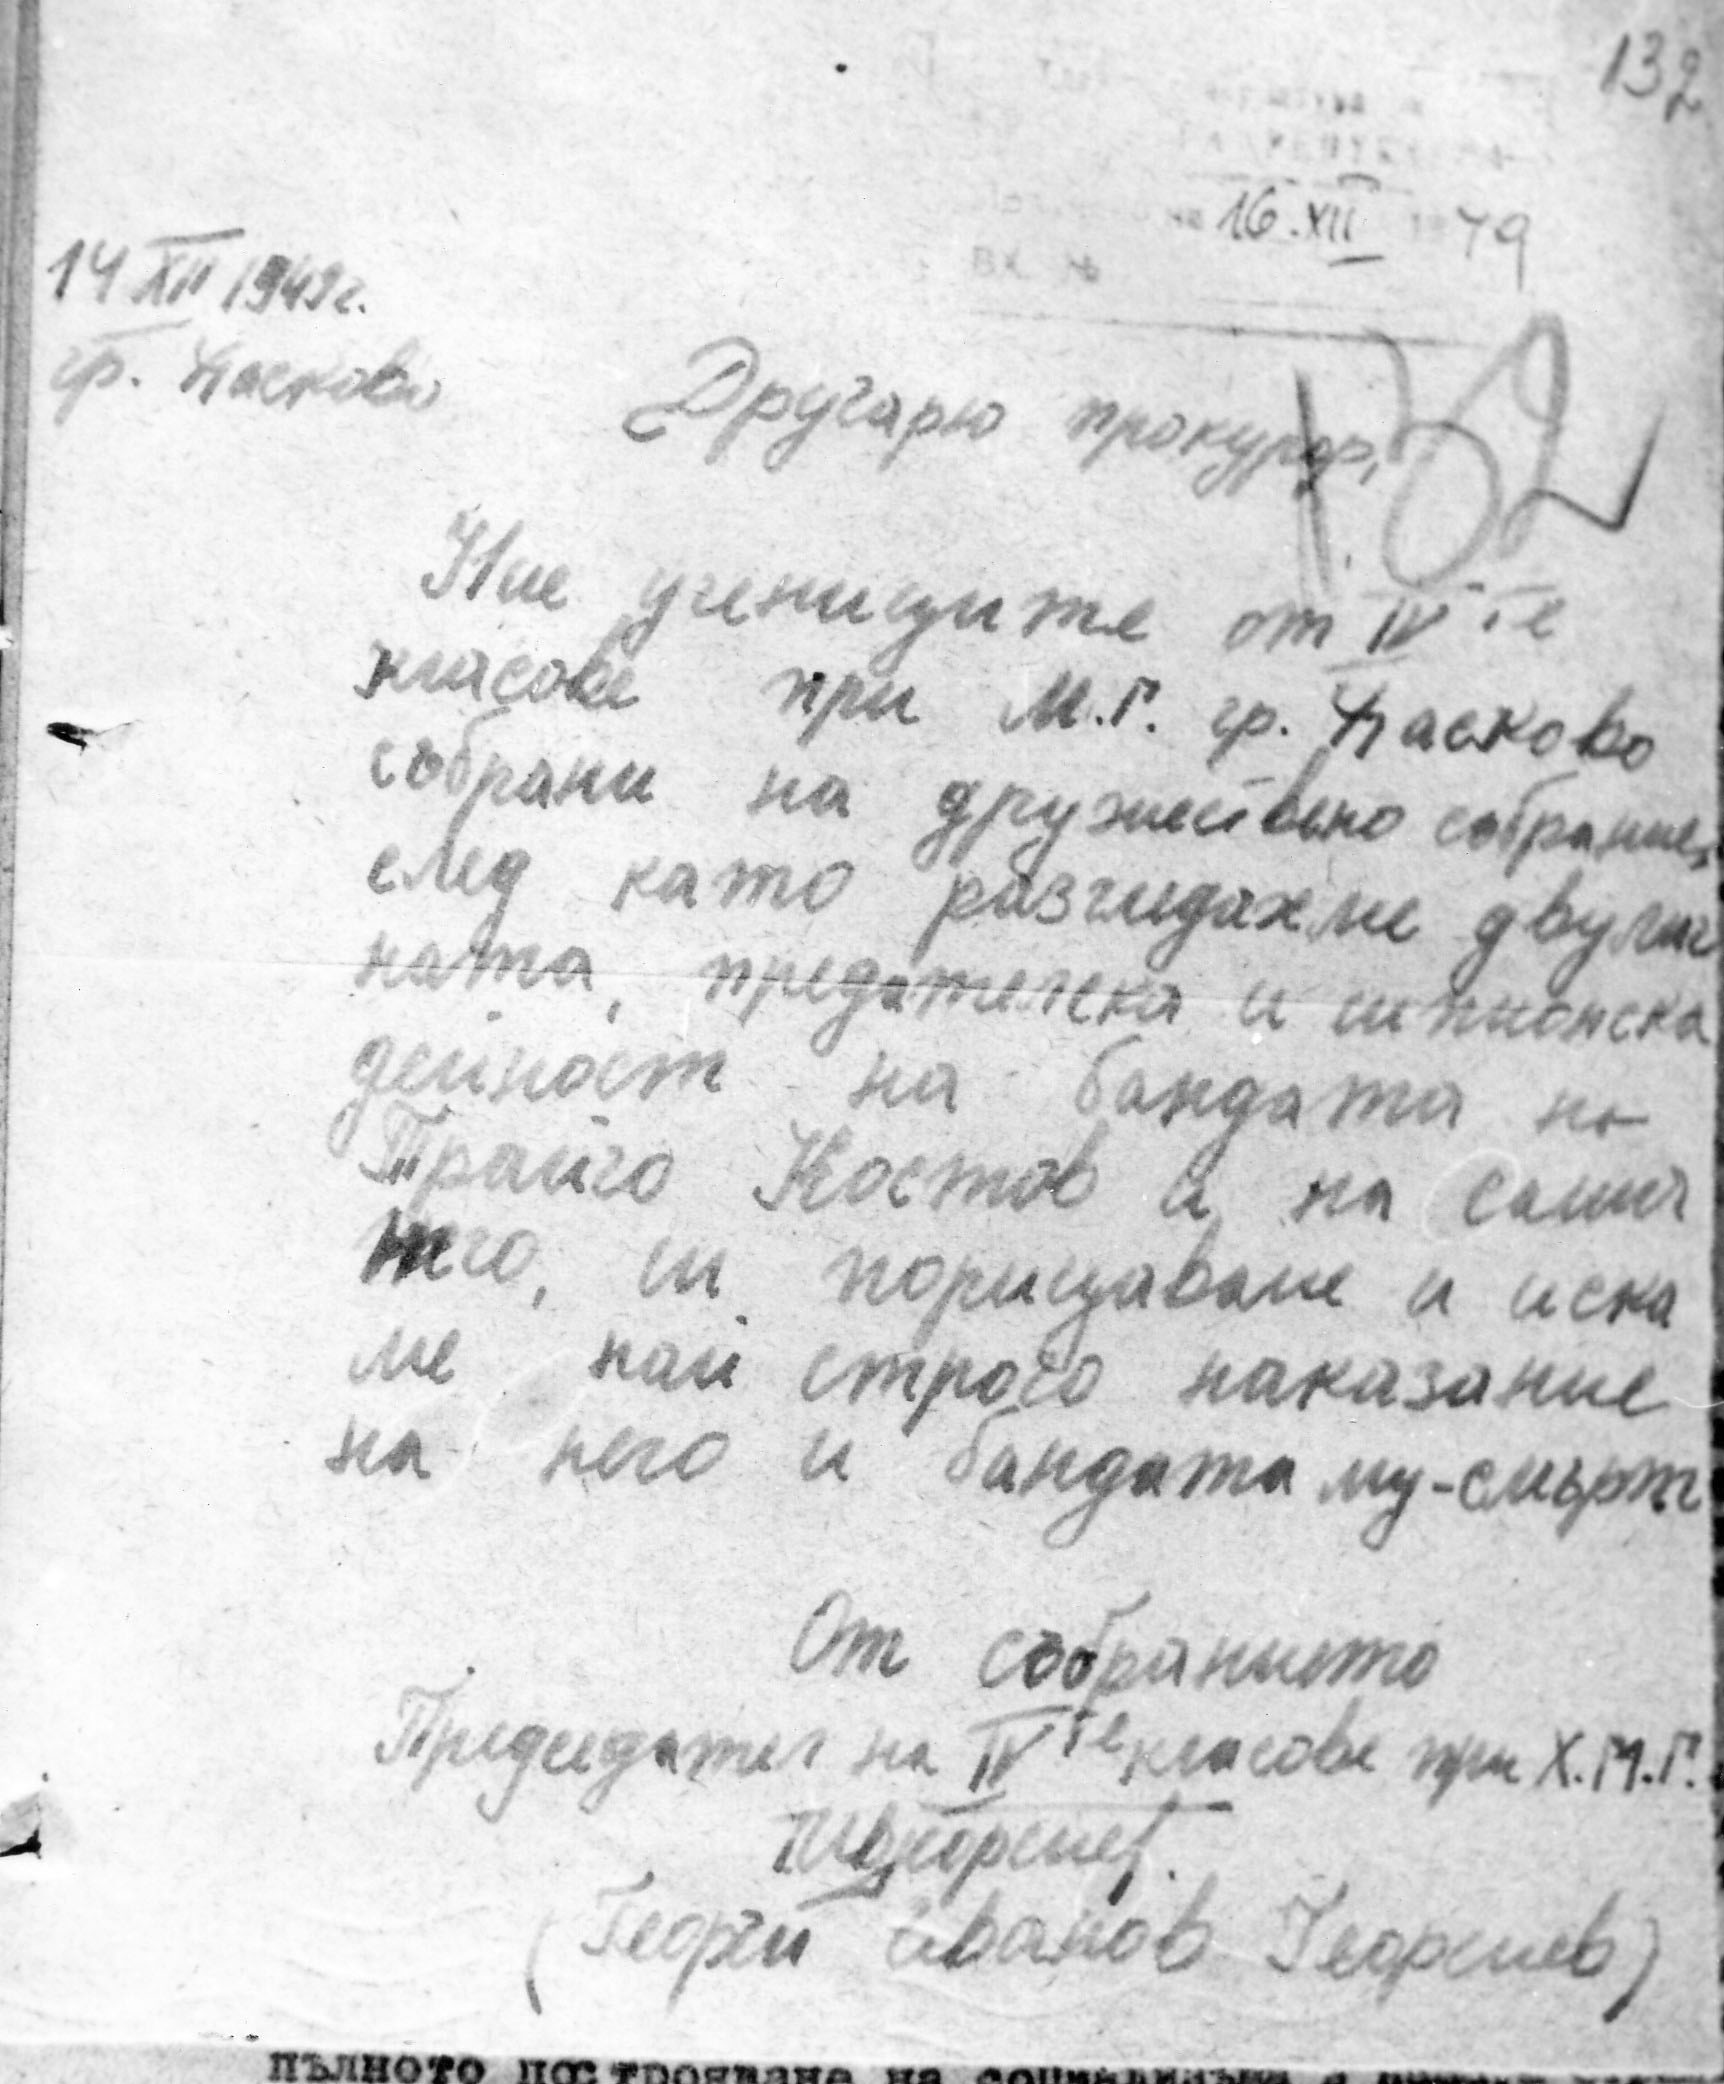 132
16.XII 1949
Вх. №
14 XII 1949 г.
гр. Хасково
Другарю прокурор,
132
Ние учениците от IV те
класове при М.Г. гр. Хасково
събрани на дружествено събрание,
след като разгледахме двулич
ната, предателска и шпионска
дейност на бандата на
Трайчо Костов и на самия
него, ги порицаваме и иска
ме най строго наказание
на него и бандата му - смърт
От събранието
Председател на IV те класове при Х.М.Г.
(Георги Иванов Георгиев)
пълното построяване на социализма в